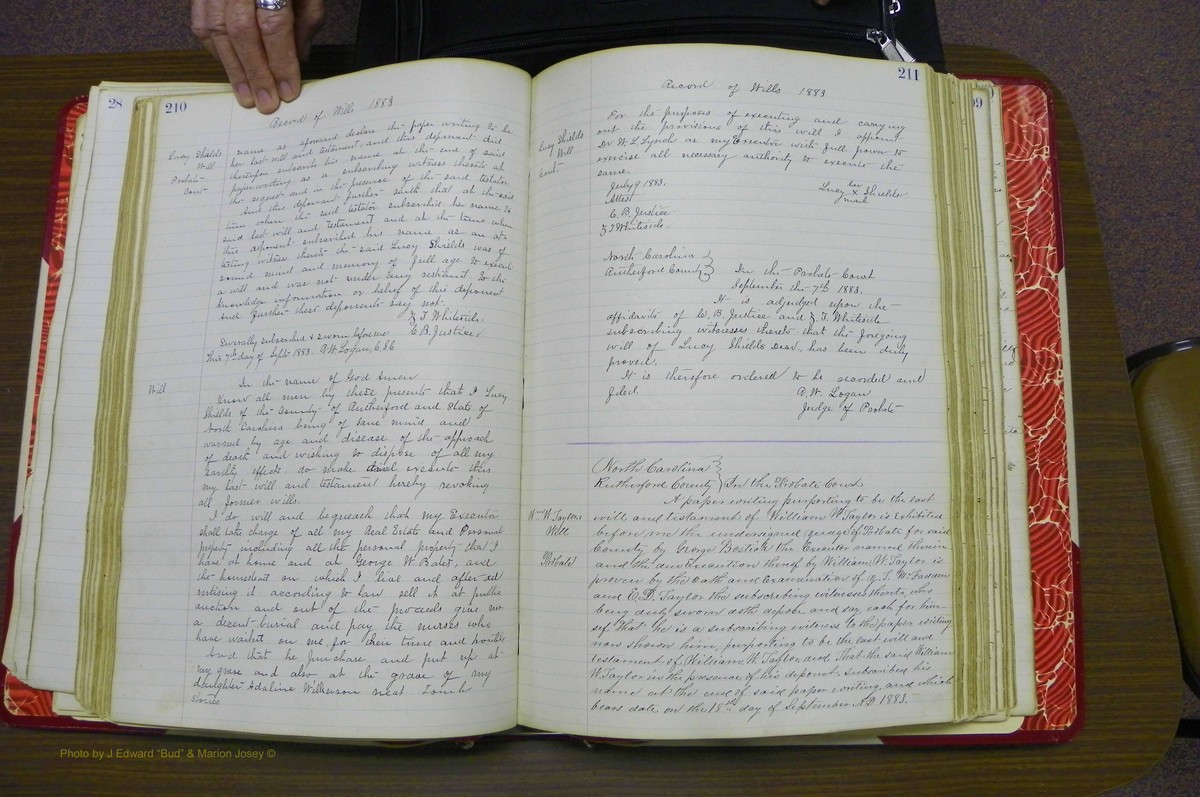 28
210
Record of Wills 1883
Lucy Shields
Will
Probate
Cont
name as aforesaid declare the paper writing to be
her last will and testament and this deponent did
thereupon subscribe his name at the end of said
paper writing as a subscribing witness thereto at
the request and in the presence of the said testator
And this deponent further saith that at the said
time when the said testator subscribed her name to
said last will and testament and at the time when
this deponent subscribed his name as an at-
testing witness thereto the said Lucy Shields was of
sound mind and memory of full age to execut
a will and was not under any restraint to the
knowledge information or belief of this deponent
And further these deponents say not.
T Whiteside
C B Justice
Severally subscribed & sworn before me
this 7th day of Sept 1883. A.W. Logan, C.S.C
Will
In the name of God Amen
Know all men by these presents that I Lucy
Shields of the County of Rutherford and State of
North Carolina being of sane mind and
warned by age and disease of the approach
of death and wishing to dispose of all my
Earthly effects do make and execute this
my last will and testament hereby revoking
all former wills.
I do will and bequeath that my Executor
shall take charge of all my Real Estate and Personal
property including all the personal property that I
have at home and at George W. Bates, and
the homestead on which I live and after ad
vertising it according to law sell it at public
auction and out of the proceeds give me
a decent burial and pay the nurses who
have waited on me, for their time and trouble
And that he purchase and put up at
my grave and also at the grave of my
daughter Adaline Wilkerson neat Tomb
Stones
211
Record of Wills 1883
Lucy Shields
Will
Cont.
For the purposes of executing and carrying
out the provisions of this will I appoint
Dr W. L. Lynch as my Executor with full power to
exercise all necessary authority to execute the
same.
July 9 1883.
Lucy her x mark Shields
Attest
C. B. Justice
T Whiteside
North Carolina }
Rutherford County } In the Probate Court
September the 7th 1883.
It is adjudged upon the
affidavits of C. B. Justice and T. Whiteside
subscribing witnesses thereto that the foregoing
will of Lucy Shields Decd. has been duly
proved.
It is therefore ordered to be recorded and
filed.
A. W. Logan
Judge of Probate
North Carolina }
Rutherford County } In the Probate Court
Wm W Taylors
Will
Probate
A paper writing purporting to be the last
will and testament of William W Taylor is exhibited
before me the undersigned Judge of Probate for said
County by George Bostick the Executor named therein
and the due execution thereof by William W. Taylor is
proven by the oath and examination of McFadden
and C.D. Taylor the subscribing witnesses thereto, who
being duly sworn doth depose and say, each for him-
self that he is a subscribing witness to the paper writing
now shown him, purporting to be the last will and
testament of William W. Taylor and That the said William
W Taylor in the presence of his deponent subscribed his
name at the end of said paper writing and which
bears date on the 18th day of September A.D. 1883.
Photo by J Edward “Bud” & Marion Josey ©